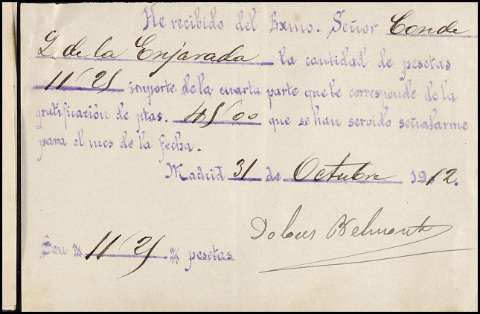 He recibido del Exmo. Señor Conde
D. de la Enjarada la cantidad de pesetas
11'25 importe de la cuarta parte que le corresponde de la
gratificación de ptas. 45'00 que se han servido señalarme
para el mes de la fecha.
Madrid 31 de Octubre 1912.
Dolores Belmonte
Son 11'25 pesetas